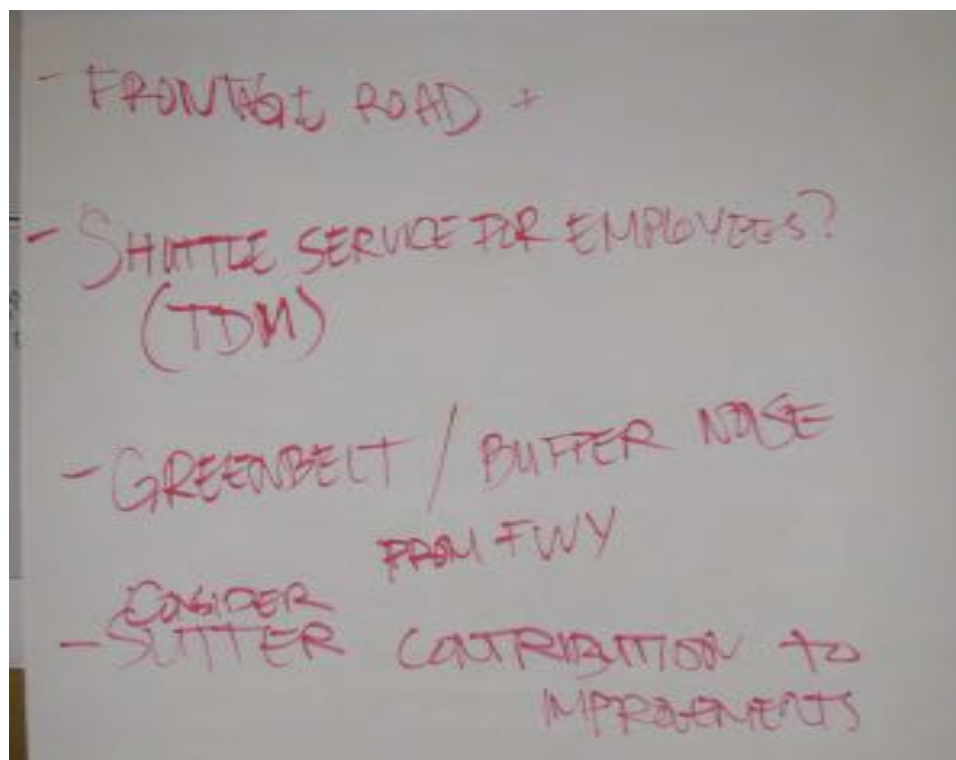 - FRONTAGE ROAD +
- SHUTTLE SERVICE FOR EMPLOYEES?
(TDM)
- GREENBELT / BUFFER NOISE
FROM FWY
CONSIDER
- SUTTER CONTRIBUTION TO
IMPROVEMENTS